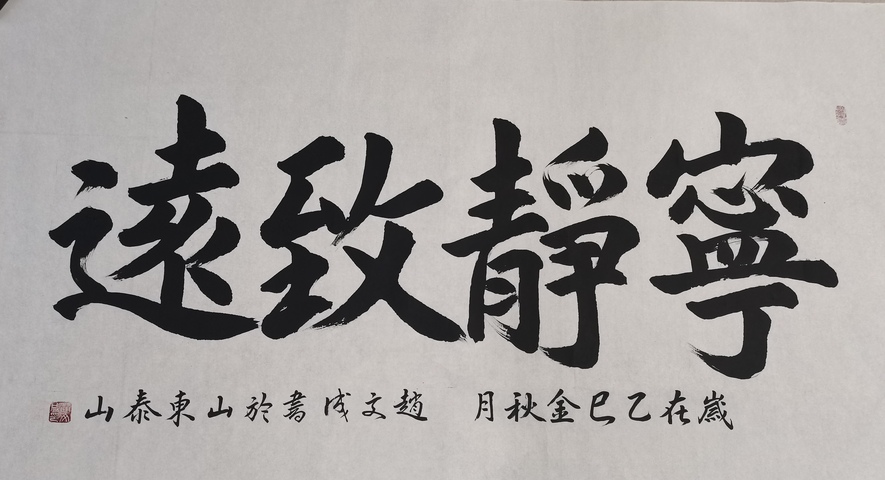 寧靜致遠
歲在乙巳金秋月 趙文成書於山東泰山